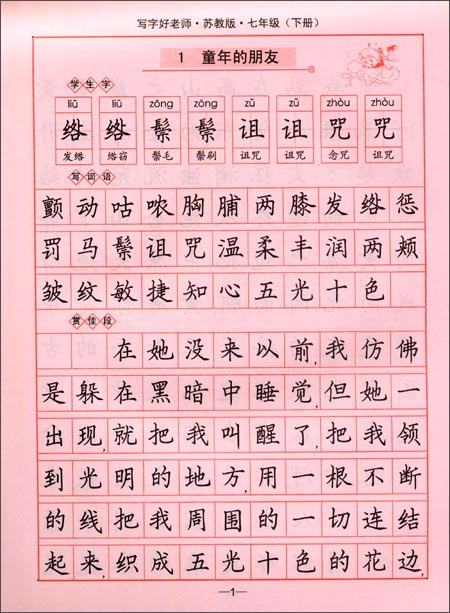 写字好老师·苏教版·七年级（下册）
1 童年的朋友
学生字
liǔ liǔ zōng zōng zǔ zǔ zhòu zhòu
绺 绺 鬃 鬃 诅 诅 咒 咒
发绺 绺窃 鬃毛 鬃刷 诅咒 诅咒 念咒 诅咒
写词语
颤动咕哝胸脯两膝发绺惩
罚马鬃诅咒温柔丰润两颊
皱纹敏捷知心五光十色
赏佳段
在她没来以前,我仿佛
是躲在黑暗中睡觉,但她一
出现,就把我叫醒了,把我领
到光明的地方,用一根不断
的线把我周围的一切连结
起来,织成五光十色的花边,
—1—